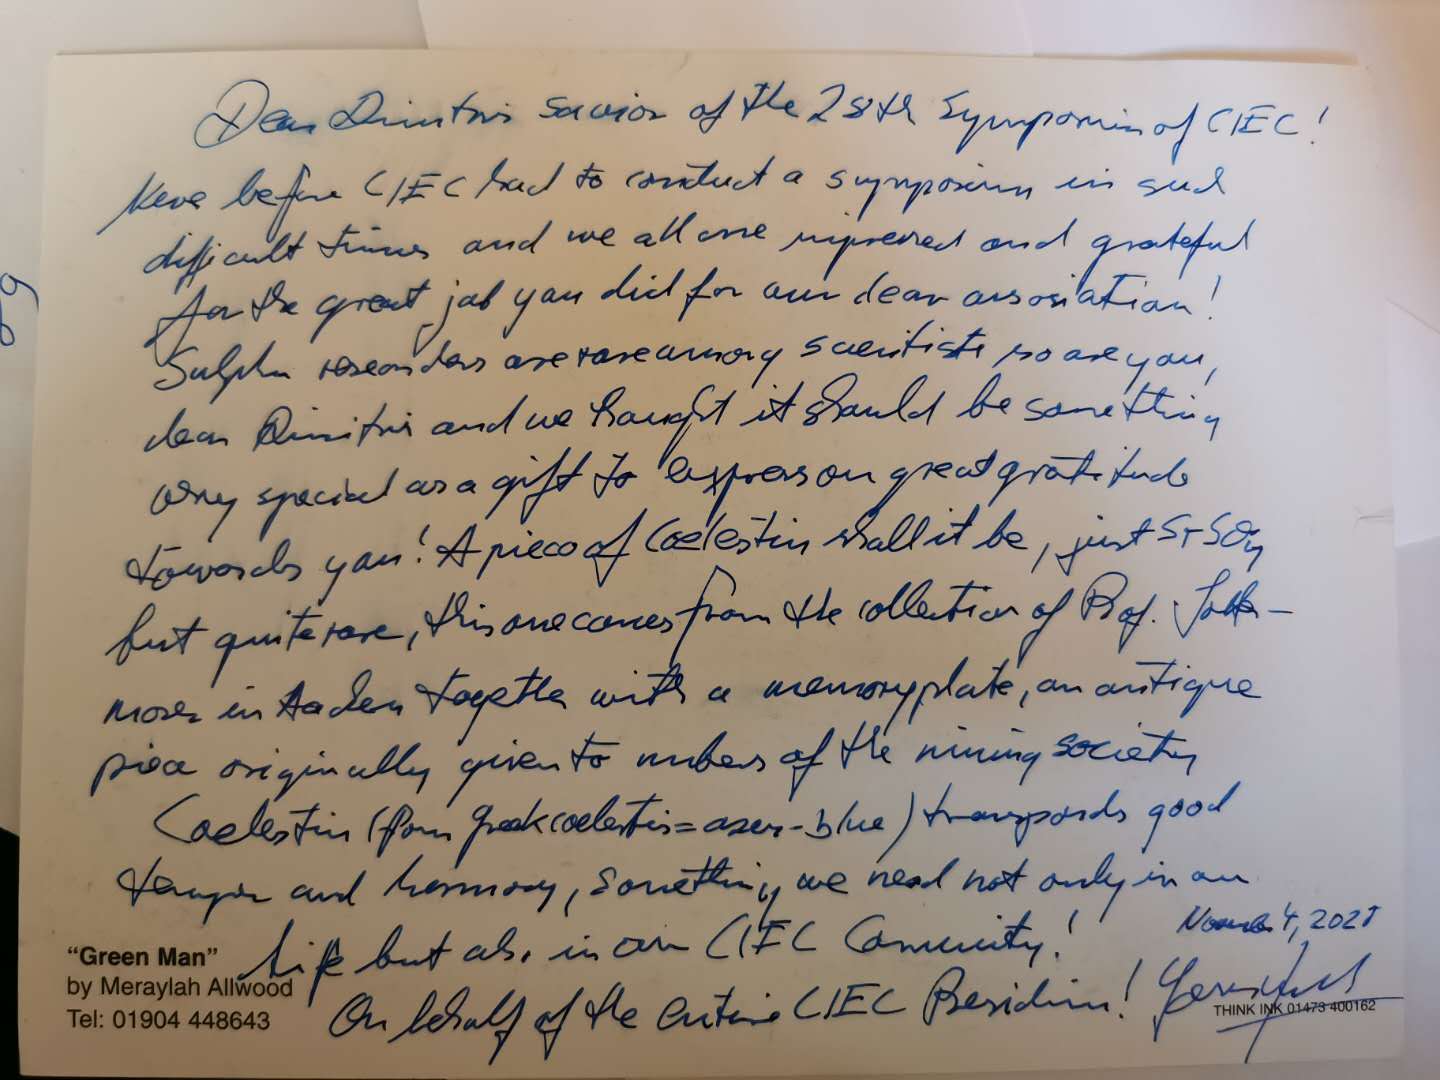 Dear Dimitris savior of the 28th Symposium of CIEC!
Never before CIEC had to conduct a symposium in such
difficult times and we all are impressed and grateful
for the great job you did for our dear association!
Sulphur researchers are rare among scientists so are you,
dear Dimitris and we thought it should be something
very special as a gift to express our great gratitude
towards you! A piece of Coelestin shall it be, just SrSO4
but quite rare, this one comes from the collection of Prof.
in Aachen together with a memory plate, an antique
piece originally given to members of the mining society
Coelestin (from Greek coelestis = azur-blue) good
temper and harmony, something we need not only in our
life but also in our CIEC Community!
November 4, 2021
On behalf of the entire CIEC Presidium!
"Green Man"
by Meraylah Allwood
Tel: 01904 448643
THINK INK 01473 400162